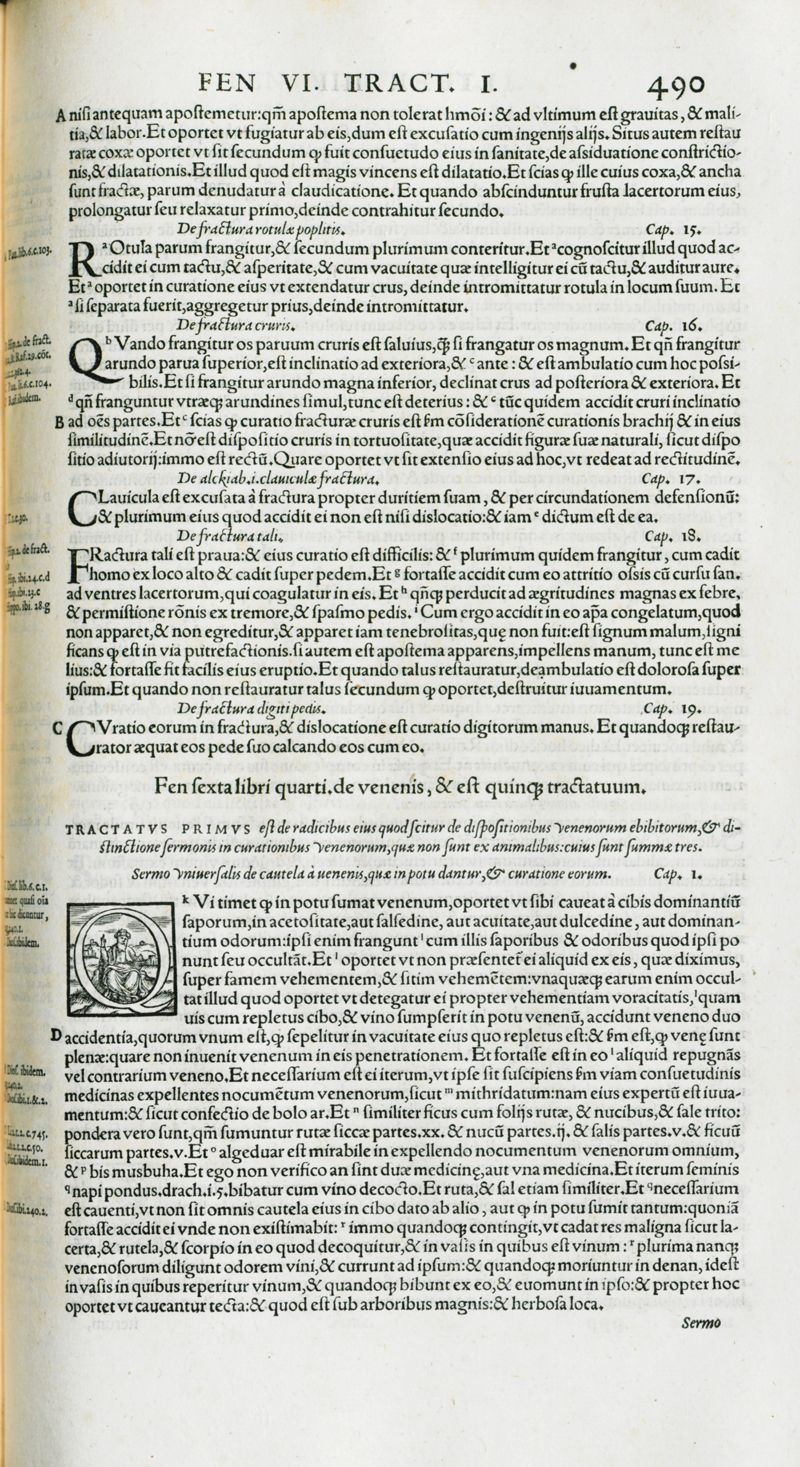 FEN VI. TRACT. I. 490
A nisi antequam apostemetur:qm̃ apostema non tolerat hmõi: & ad vltimum est grauitas, & mali-
tia,& labor.Et oportet vt fugiatur ab eis,dum est excusatio cum ingenijs alijs. Situs autem restau
ratæ coxæ oportet vt sit secundum ꝙ fuit consuetudo eius in sanitate,de assiduatione constrictio-
nis,& dilatationis.Et illud quod est magis vincens est dilatatio.Et scias ꝙ ille cuius coxa,& ancha
sunt fractæ, parum denudatur à claudicatione. Et quando abscinduntur frusta lacertorum eius,
prolongatur seu relaxatur primo,deinde contrahitur secundo.
De fractura rotulæ poplitis. Cap. 15.
R ᵃ Otula parum frangitur,& secundum plurimum conteritur.Et ᵃ cognoscitur illud quod ac-
cidit ei cum tactu,& asperitate,& cum vacuitate quæ intelligitur ei cũ tactu,& auditur aure.
Et ᵃ oportet in curatione eius vt extendatur crus, deinde intromittatur rotula in locum suum. Et
ᵃ si separata fuerit,aggregetur prius,deinde intromittatur.
De fractura cruris. Cap. 16.
Q ᵇ Vando frangitur os paruum cruris est saluius,ꝙ̃ si frangatur os magnum. Et qñ frangitur
arundo parua superior,est inclinatio ad exteriora,& ᶜ ante : & est ambulatio cum hoc possi-
bilis.Et si frangitur arundo magna inferior, declinat crus ad posteriora & exteriora. Et
ᵈ qñ franguntur vtræq; arundines simul,tunc est deterius : & ᶜ tũc quidem accidit cruri inclinatio
B ad oẽs partes.Et ᶜ scias ꝙ curatio fracturæ cruris est s̃m cõsiderationẽ curationis brachij & in eius
similitudinẽ.Et nõ est dispositio cruris in tortuositate,quæ accidit figuræ suæ naturali, sicut dispo
sitio adiutorij:immo est rectũ.Quare oportet vt sit extensio eius ad hoc,vt redeat ad rectitudinẽ.
De alckiab.i.clauiculæ fractura. Cap. 17.
CLauicula est excusata à fractura propter duritiem suam, & per circundationem defensionũ:
& plurimum eius quod accidit ei non est nisi dislocatio:& iam ᵉ dictum est de ea.
De fractura tali. Cap. 18.
FRactura tali est praua:& eius curatio est difficilis: & ᶠ plurimum quidem frangitur, cum cadit
homo ex loco alto & cadit super pedem. Et ᵍ fortasse accidit cum eo attritio ossis cũ cursu san.
ad ventres lacertorum,qui coagulatur in eis. Et ʰ qñq; perducit ad ægritudines magnas ex febre,
& permistione rõnis ex tremore,& spasmo pedis. ⁱ Cum ergo accidit in eo ap̃a congelatum,quod
non apparet,& non egreditur,& apparet iam tenebrositas,quę non fuit:est signum malum,signi
ficans ꝙ est in via putrefactionis.si autem est apostema apparens,impellens manum, tunc est me
lius:& fortasse fit facilis eius eruptio.Et quando talus restauratur,deambulatio est dolorosa super
ipsum.Et quando non restauratur talus secundum ꝙ oportet,destruitur iuuamentum.
De fractura digiti pedis. Cap. 19.
C CVratio eorum in fractura,& dislocatione est curatio digitorum manus. Et quandoq; restau-
rator æquat eos pede suo calcando eos cum eo.
Fen sexta libri quarti.de venenis, & est quinq; tractatuum.
TRACTATVS PRIMVS est de radicibus eius quod scitur de dispositionibus venenorum ebibitorum,& di-
stinctione sermonis in curationibus venenorum,quæ non sunt ex animalibus:cuius sunt summæ tres.
Sermo vniuersalis de cautela à uenenis,quæ in potu dantur,& curatione eorum. Cap. 1.
Q ᵏ Vi timet ꝙ in potu sumat venenum, oportet vt sibi caueat à cibis dominantiũ
saporum,in acetositate,aut salsedine, aut acuitate,aut dulcedine, aut dominan-
tium odorum:ipsi enim frangunt ˡ cum illis saporibus & odoribus quod ipsi po
nunt seu occultãt.Et ˡ oportet vt non præsentet̃ ei aliquid ex eis, quæ diximus,
super famem vehementem,& sitim vehemẽtem:vnaquæq; earum enim occul-
tat illud quod oportet vt detegatur ei propter vehementiam voracitatis,ˡ quam
uis cum repletus cibo,& vino sumpserit in potu venenũ, accidunt veneno duo
D accidentia,quorum vnum est,ꝙ sepelitur in vacuitate eius quo repletus est:& s̃m est,ꝙ venę sunt
plenæ:quare non inuenit venenum in eis penetrationem. Et fortasse est in eo ˡ aliquid repugnãs
vel contrarium veneno.Et necessarium est ei iterum,vt ipse sit suscipiens s̃m viam consuetudinis
medicinas expellentes nocumẽtum venenorum,sicut ᵐ mithridatum:nam eius expertũ est iuua-
mentum:& sicut confectio de bolo ar.Et ⁿ similiter ficus cum folijs rutæ, & nucibus,& sale trito:
pondera vero sunt,qm̃ sumuntur rutæ siccæ partes.xx. & nucũ partes.ij. & salis partes.v.& ficuũ
siccarum partes.v.Et ᵒ algeduar est mirabile in expellendo nocumentum venenorum omnium,
& ᵖ bis musbuha.Et ego non verifico an sint duæ medicinę,aut vna medicina.Et iterum seminis
ᑫ napi pondus.drach.i.5.bibatur cum vino decocto.Et ruta,& sal etiam similiter.Et ᑫ necessarium
est cauenti,vt non sit omnis cautela eius in cibo dato ab alio, aut ꝙ in potu sumit tantum:quoniã
fortasse accidit ei vnde non existimabit: ʳ immo quandoq; contingit,vt cadat res maligna sicut la-
certa,& rutela,& scorpio in eo quod decoquitur,& in vasis in quibus est vinum : ʳ plurima nanq;
venenosorum diligunt odorem vini,& currunt ad ipsum:& quandoq; moriuntur in denan, idest
in vasis in quibus reperitur vinum,& quandoq; bibunt ex eo,& euomunt in ipso:& propter hoc
oportet vt caueantur tecta:& quod est sub arboribus magnis:& herbosa loca.
Sermo